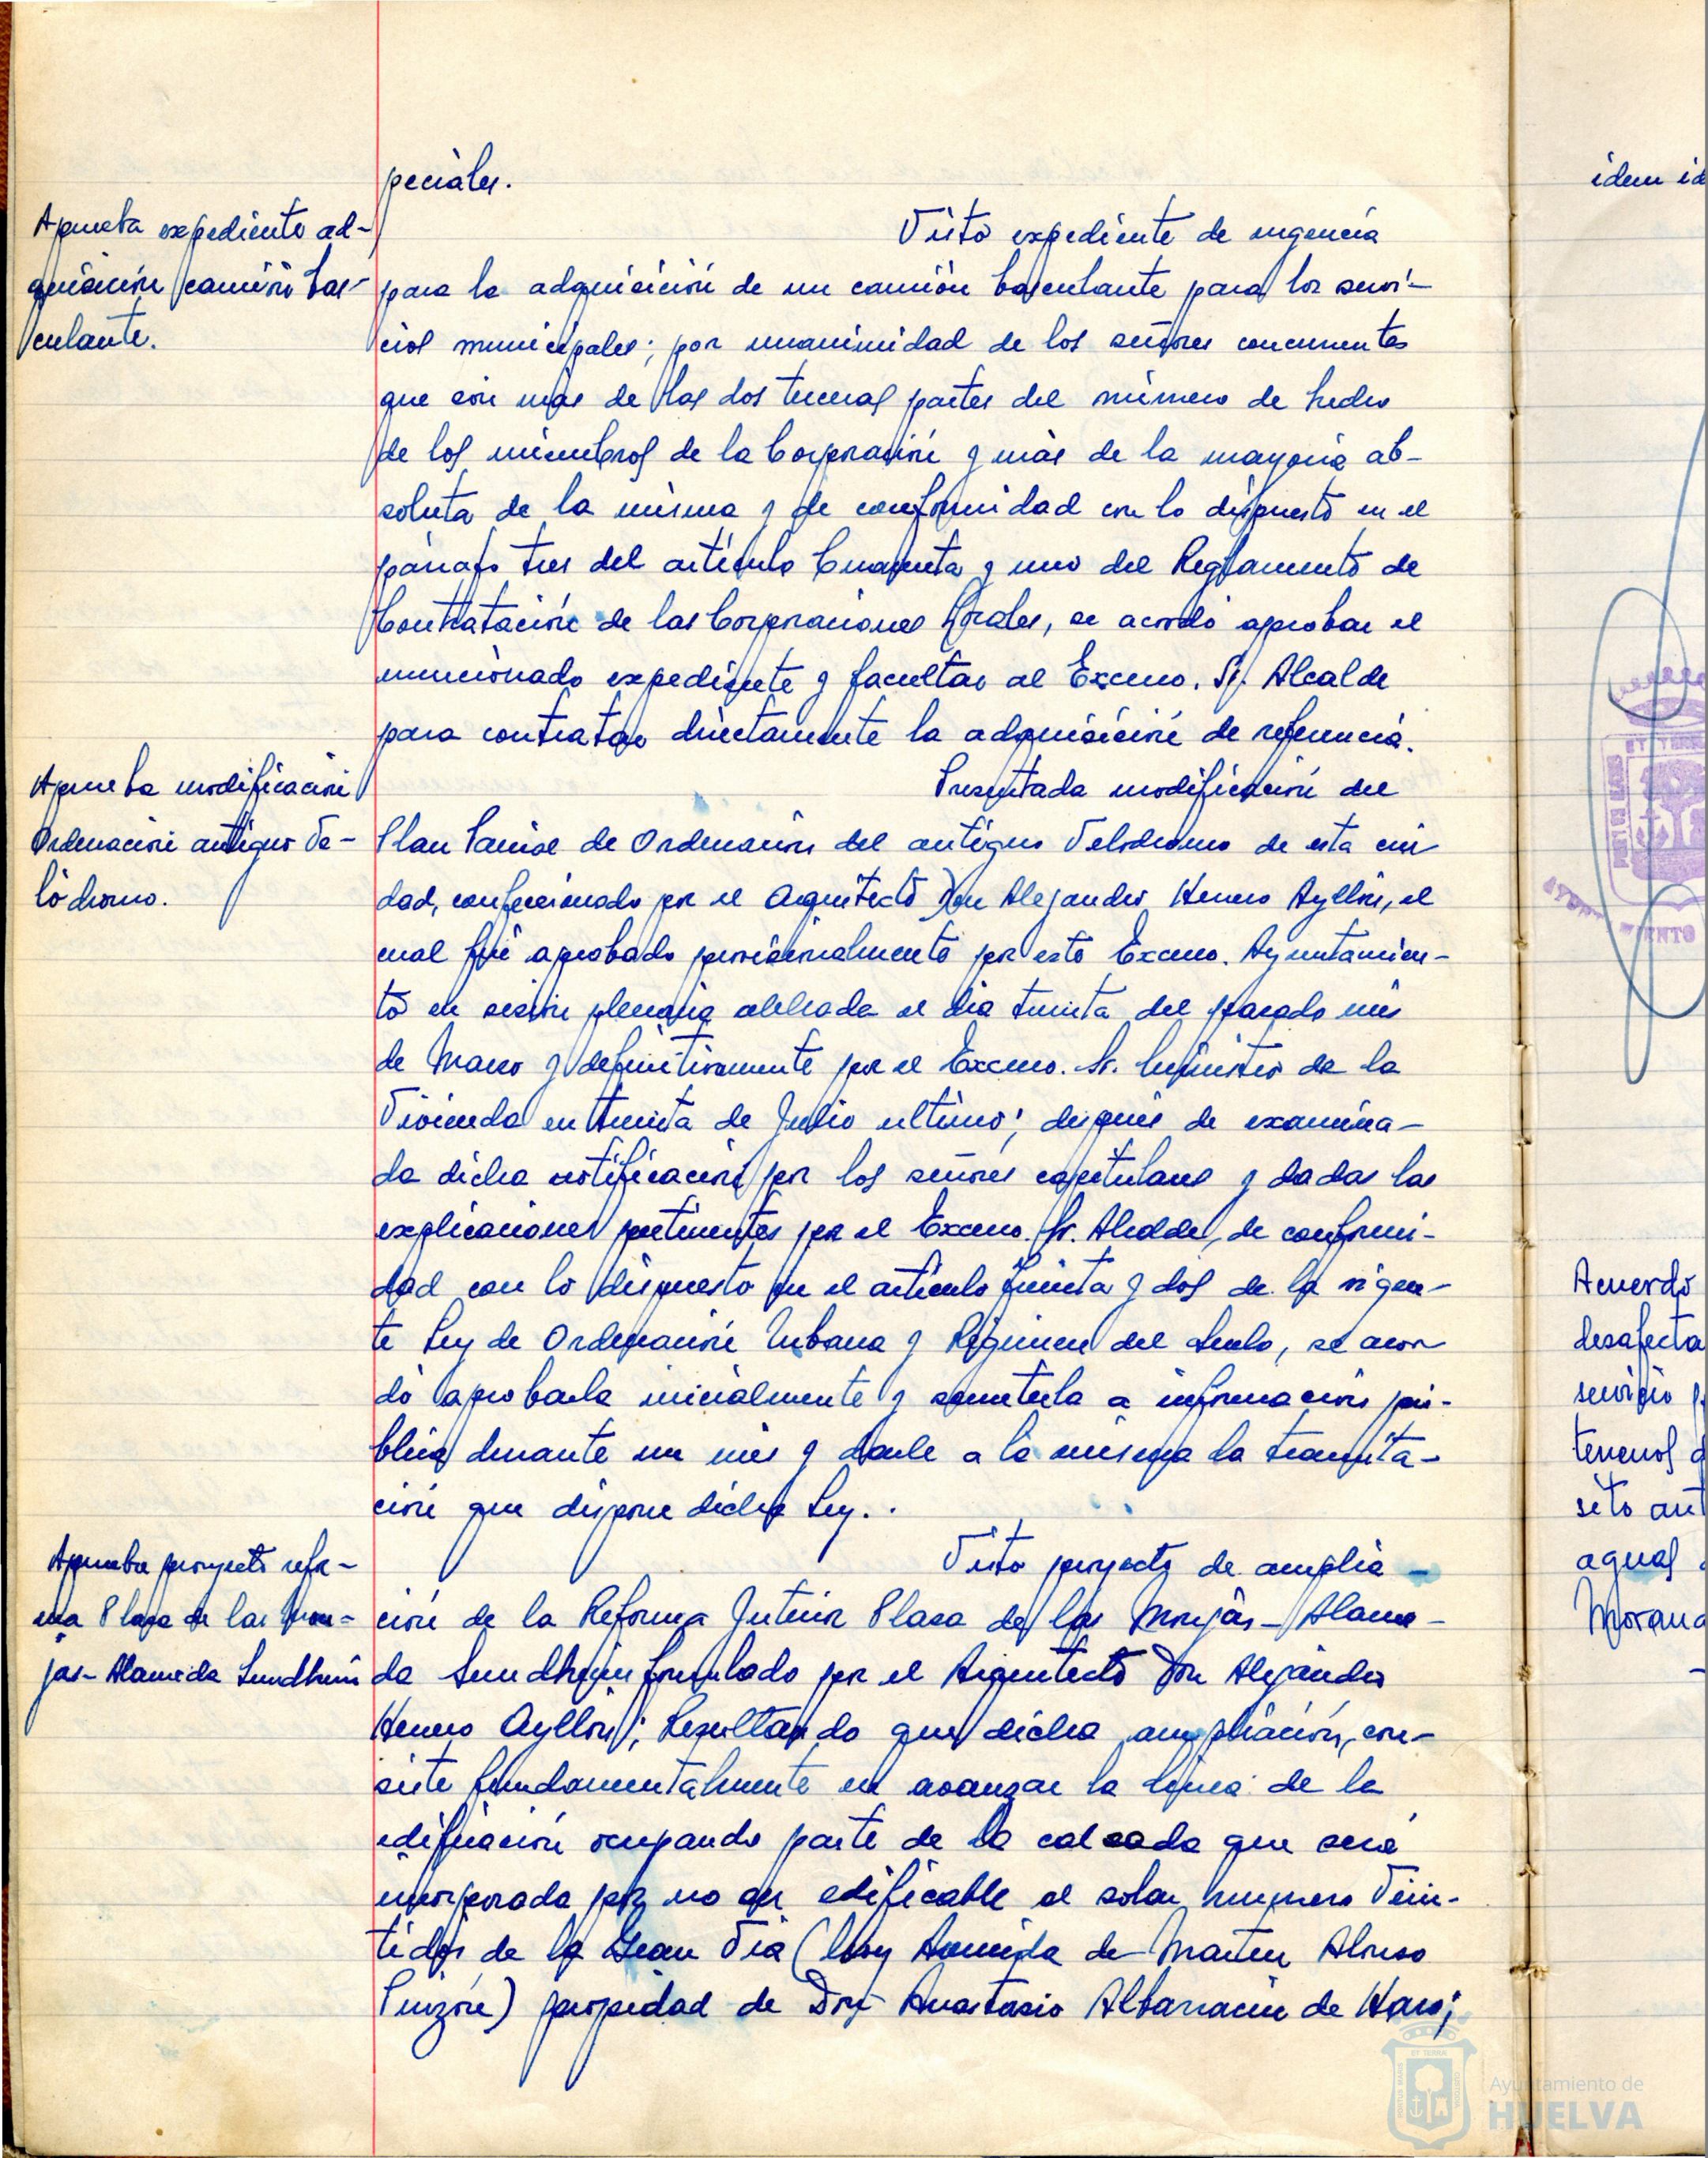 peciales.
Aprueba expediente ad-
quisición camión bas-
culante.
Visto expediente de urgencia
para la adquisición de un camión basculante para los servi-
cios municipales; por unanimidad de los señores concurrentes
que son más de las dos terceras partes del número de hecho
de los miembros de la Corporación y más de la mayoría ab-
soluta de la misma y de conformidad con lo dispuesto en el
párrafo tres del artículo Cuarenta y uno del Reglamento de
Contratación de las Corporaciones Locales, se acordó aprobar el
mencionado expediente y facultar al Excmo. Sr. Alcalde
para contratar directamente la adquisición de referencia.
Aprueba modificación
Ordenación antiguo Ve-
lódromo.
Presentada modificación del
Plan Parcial de Ordenación del antiguo Velódromo de esta ciu
dad, confeccionado por el Arquitecto Don Alejandro Herrero Ayllón, el
cual fué aprobado provisionalmente por este Excmo. Ayuntamien-
to en sesión plenaria celebrada el día treinta del pasado mes
de Marzo y definitivamente por el Excmo. Sr. Ministro de la
Vivienda en treinta de Julio último; después de examina-
da dicha notificación por los señores capitulares y dadas las
explicaciones pertinentes por el Excmo. Sr. Alcalde, de conformi-
dad con lo dispuesto en el artículo treinta y dos de la vigen-
te Ley de Ordenación Urbana y Régimen del Suelo, se acor
dó aprobarla inicialmente y someterla a información pú-
blica durante un mes y darle a la misma la tramita-
ción que dispone dicha Ley.
Aprueba proyecto refor-
ma Plaza de las Mon-
jas- Alameda Sundheim
Visto proyecto de amplia-
ción de la Reforma Interior Plaza de las Monjas-Alame-
da Sundheim formulado por el Arquitecto Don Alejandro
Herrero Ayllón; Resultando que dicha ampliación, con-
siste fundamentalmente en avanzar la línea de la
edificación ocupando parte de la calzada que será
incorporada por no ser edificable al solar número Vein-
tidós de la Gran Vía (hoy Avenida de Martín Alonso
Pinzón) propiedad de Don Anastasio Albarracín de Haro;
idem id
Acuerdo
desafecta
servicio p
terrenos d
sito ant
aguas
Morana
ET TERRA
PORTUS MARIS
Ayuntamiento de
HUELVA